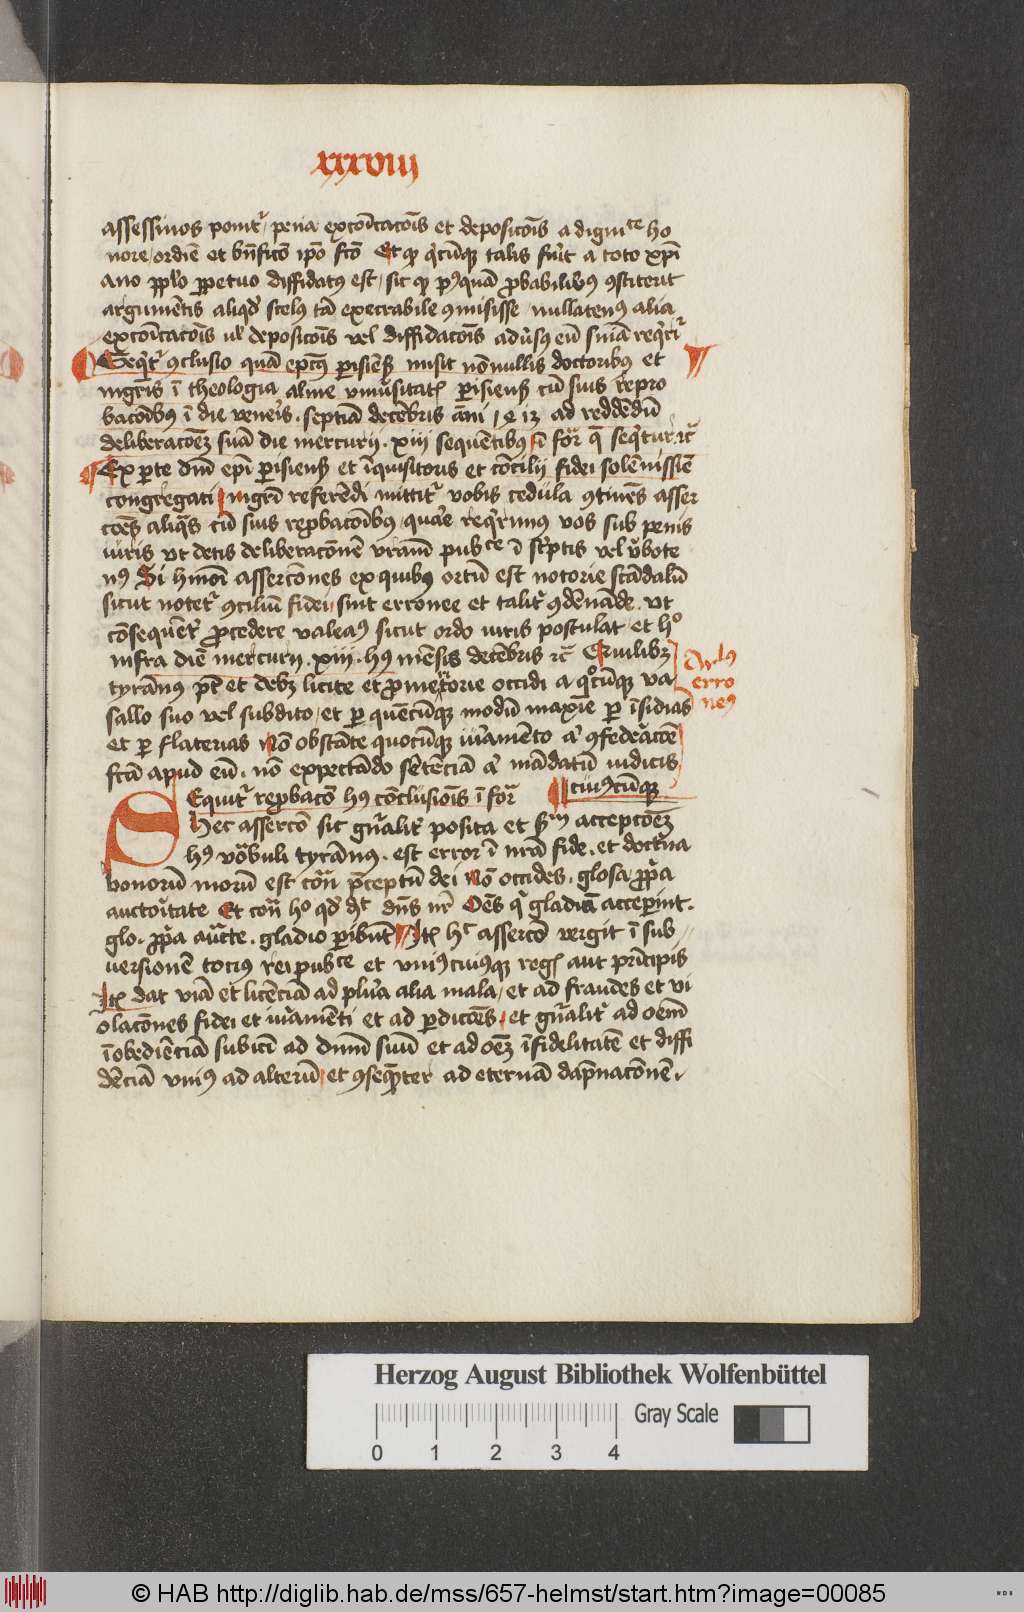 xxxviii
assessinos ponit᷑ pena excōicacōis et deposicōis a digni^te ho
nore / ordīe et bn̄ficō ip̄o fcō Et qꝫ q̄cūqꝫ talis fūit a toto xp̄i
ano pp̄lo ꝑpetuo diffidatꝯ est / sic qꝫ pꝰquā ꝓbabilibꝯ ꝯstiterit
argumētis aliqd̓ scelꝯ tā execrabile ꝯmisisse / nullatenꝯ alia
excōicacōis ul̓ deposicōis vel diffidacōis adūsꝯ eū snīā req̄ri᷑
Seq̄t᷑ ꝯclusio quā ep̄cꝯ ꝑisienꝭ misit nōnullis doctoribꝯ et
mgr̄is ī theologia alme vniūsitatꝭ ꝑisienꝭ cū suis repro
bacōibꝯ ī die venēis . septīa decēbris āni ad reddēdū
deliberacōeꝫ suā die mercurij . xiij sequētibꝯ ī for̄ q̄ seq̄tur ꝛc̄
Ex ꝑte dn̄i ep̄i ꝑisienꝭ et īquisitoris et cōcilij fidei solēnissīe
congregati mgr̄i referēdi mittit᷑ vobis cedula ꝯtinēs asser
cōes aliq̄s cū suis reꝓbacōibꝯ / quāe req̄rimꝯ vos sub penis
iuris vt detis deliberacōnē vrām pub^ce ī sc̄ptis vel v̄bote
nꝯ Si hmōi assercōnes ex quibꝯ ortū est notorie scādalū
sicut notet᷑ ꝯciliū fidei / sint erronee et talit᷑ ꝯdēnāde . vt
cōsequēt᷑ ꝓcedere valeaꝯ sicut ordo iuris postulat et h^o
infra diē mercurij . xiij . hꝯ mēsis decēbris ꝛc̄ Quilibꝫ
tyrānꝯ pt̄ et debꝫ licite et ꝓmeritorie occidi a q̊cūqꝫ va
sallo suo vel subdito / et ꝑ quēcūqꝫ modū maxīe ꝑ īsidias
et ꝑ flaterias Nō obstāte quocūqꝫ iūamēto a᷑ ꝯfederacōe
fcā apud eū . nō expectādo sētēciā a᷑ mādatū iudicis
cuiꝯcūqꝫ
Ar^lus
erro
neꝯ
Sequit᷑ reꝓbacō hꝯ cōclusiōis ī for̄
Hec assercō sic gn̄alit᷑ posita et s^m accepcōeꝫ
hꝯ vōbuli tyrānꝯ . est error ī nrā fide . et doctīna
bonorū morū est cōn̄ p̄ceptū dei Nō occides . glosa ꝓp̄a
auctoītate Et cōn̄ h^o qd̓ d^t dn̄s nr̄ Oēs q^i gladiū acceperīt .
glo . ꝓp̄a aūcte . gladio ꝑibūt Itꝭ h^c assercō vergit ī sub
uersionē tociꝯ rei pub^ce et vniꝯcuiꝯqꝫ regꝭ aut prīcipis
Itꝭ dat viā et licēciā ad plūa alia mala / et ad fraudes et vi
olacōnes fidei et iūamēti et ad ꝑdicōes / et gn̄alit᷑ ad oēm
īobediēciā subiti ad dnm̄ suū et ad oēꝫ īfidelitatē et diffi
dēciā vniꝯ ad alterū / et ꝯseqūeter ad eternā dāpnacōnē .
Herzog August Bibliothek Wolfenbüttel
Gray Scale
0 1 2 3 4
© HAB http://diglib.hab.de/mss/657-helmst/start.htm?image=00085